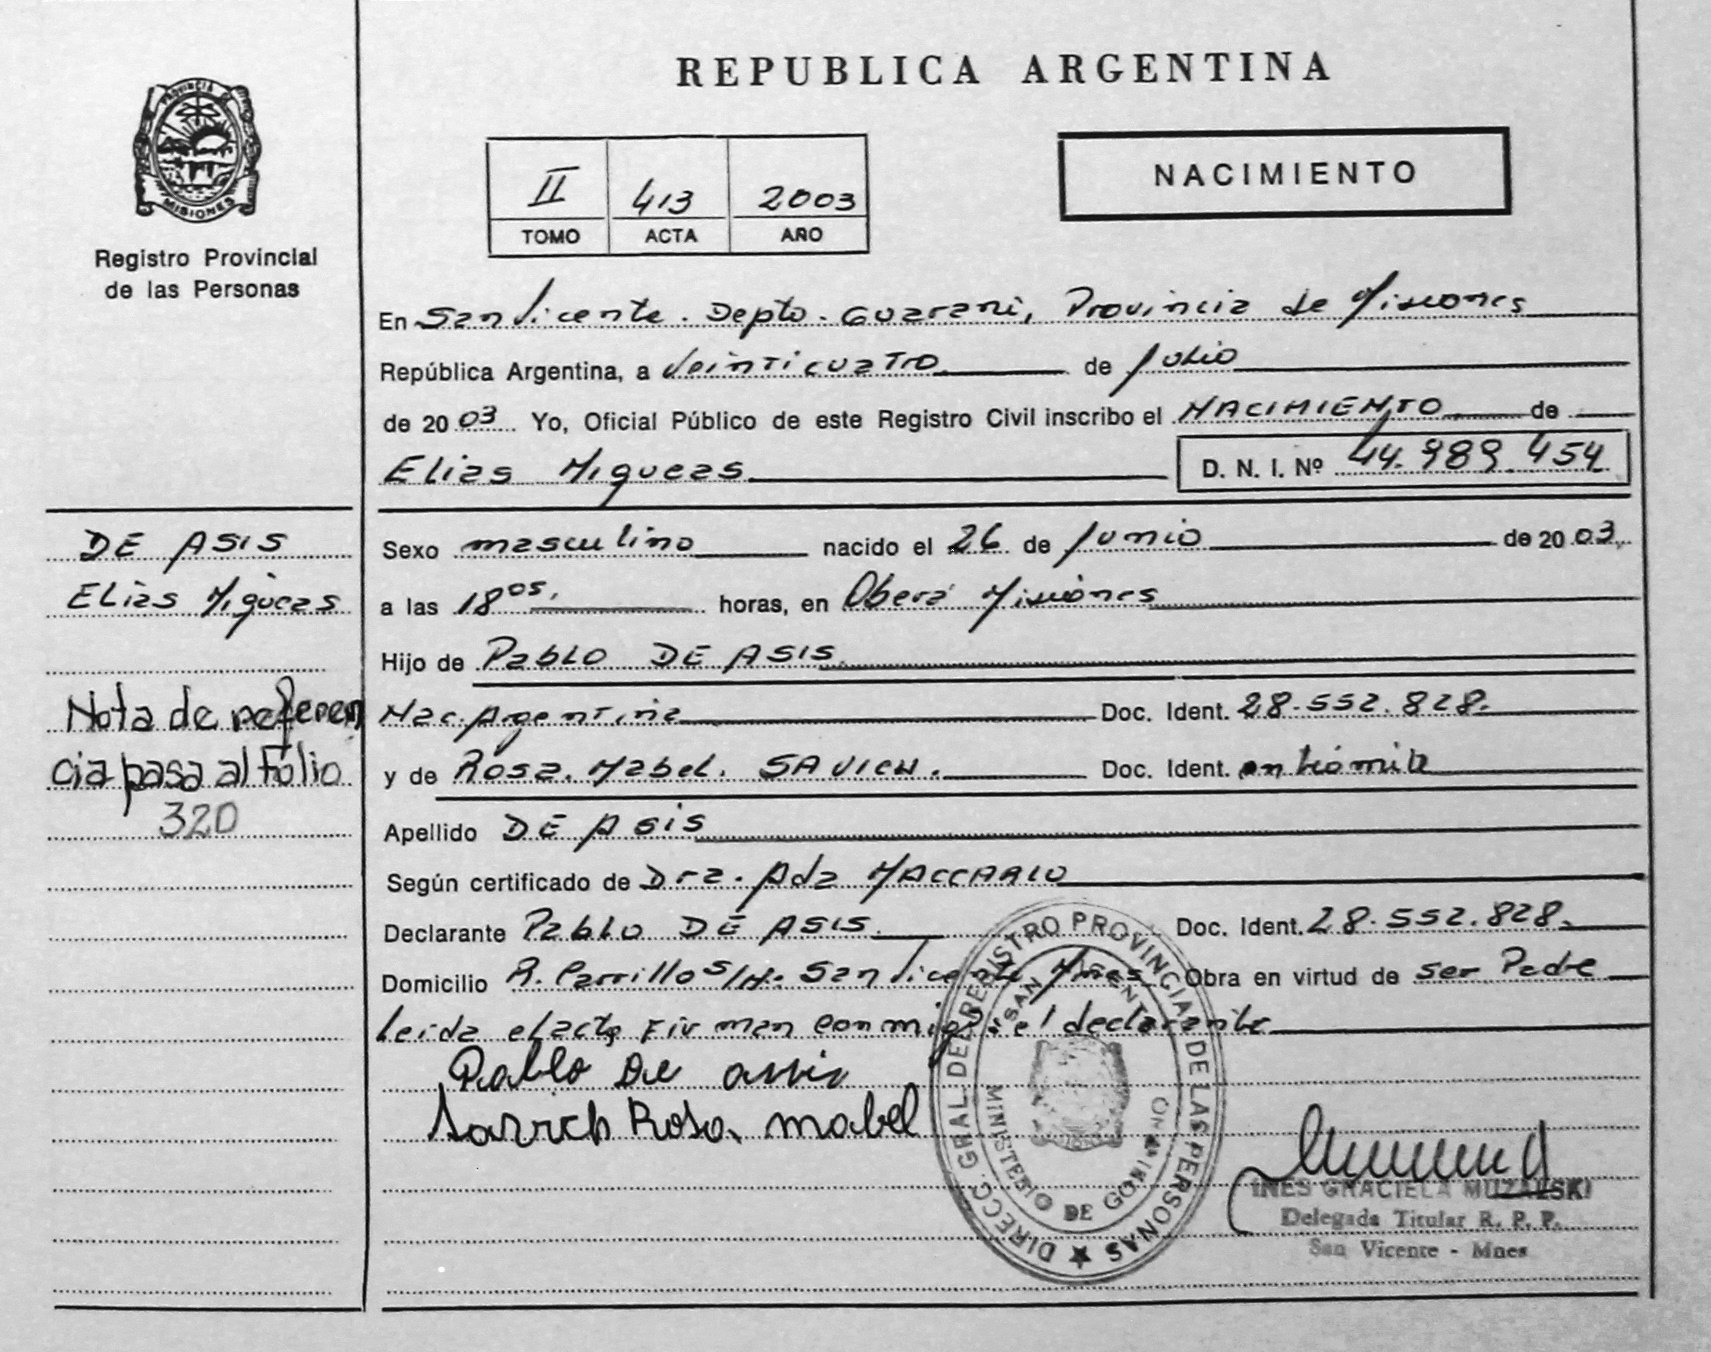 PROVINCIA DE
MISIONES
Registro Provincial
de las Personas
REPUBLICA ARGENTINA
II 413 2003
TOMO ACTA AÑO
NACIMIENTO
En San Vicente. Depto. Guarani, Provincia de Misiones
República Argentina, a veinticuatro de Julio
de 2003 Yo, Oficial Público de este Registro Civil inscribo el NACIMIENTO de
Elias Migueas
D. N. I. Nº 44.989.454
DE ASIS
Elias Migueas
Nota de referen
cia pasa al Folio
320
Sexo masculino nacido el 26 de Junio de 2003.
a las 18 05. horas, en Oberá Misiones
Hijo de Pablo DE ASIS
Nac. Argentina Doc. Ident. 28.552.828.
y de Rosa. Mabel. Doc. Ident.
Apellido DE Asis
Según certificado de Dra. Ada MACCARIO
Declarante Pablo DE ASIS. Doc. Ident. 28.552.828.
Domicilio R. Carrillo S/N. San Vicente Mnes Obra en virtud de ser Padre
Leida el acta Firman conmigo: el declarante
Pablo De assis
Rosa mabel
DIRECC. GRAL. DEL REGISTRO PROVINCIAL DE LAS PERSONAS
SAN VICENTE
MINISTERIO DE GOBIERNO
INES GRACIELA MUZALSKI
Delegada Titular R. P. P.
San Vicente - Mnes